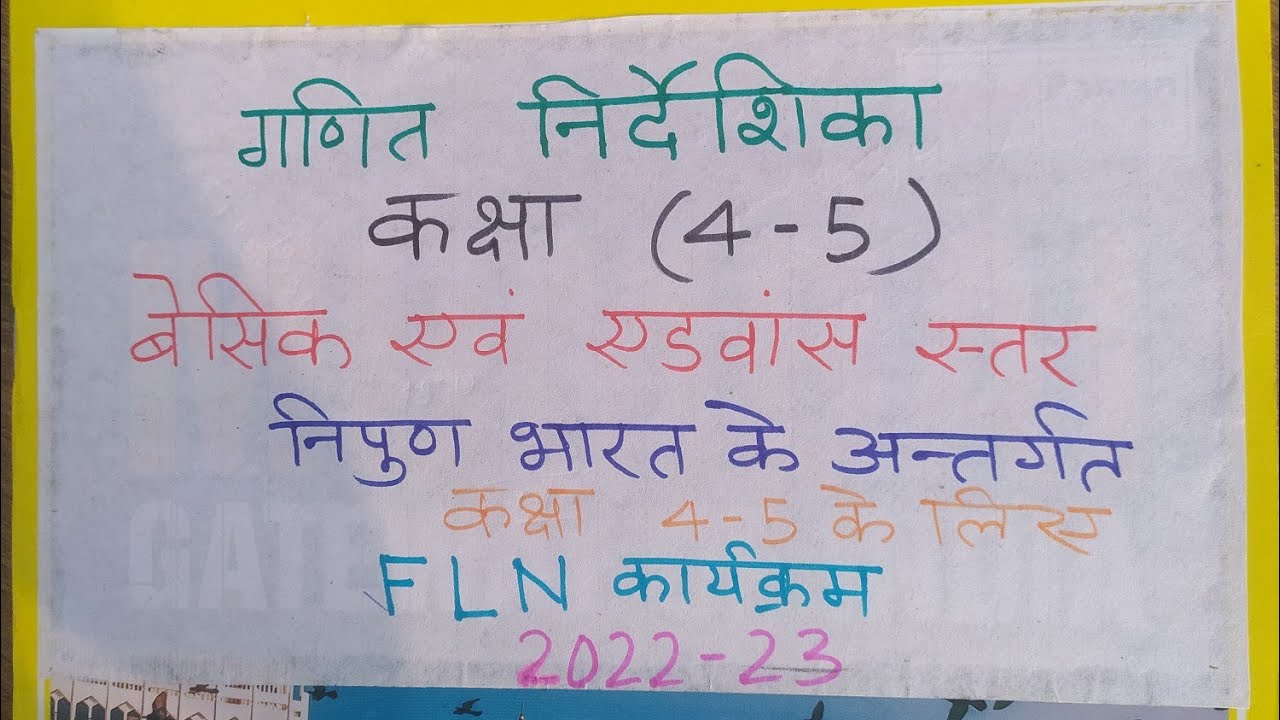 गणित निर्देशिका
कक्षा (4-5)
बेसिक एवं एडवांस स्तर
निपुण भारत के अन्तर्गत
कक्षा 4-5 के लिए
FLN कार्यक्रम
2022-23